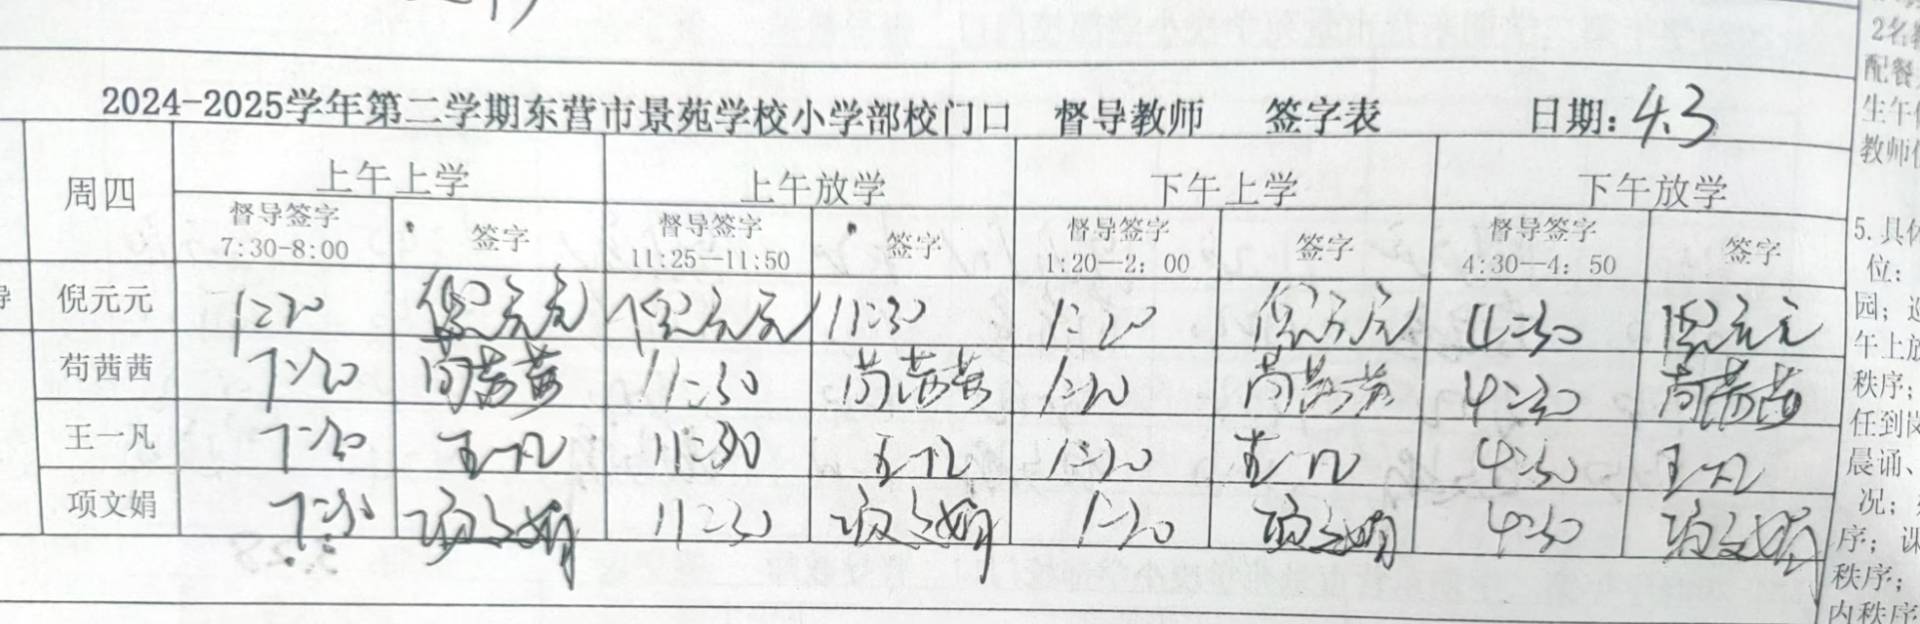 2024-2025学年第二学期东营市景苑学校小学部校门口 督导教师 签字表 日期: 4.3
周四 上午上学 上午放学 下午上学 下午放学
督导签字 7:30-8:00 签字 督导签字 11:25—11:50 签字 督导签字 1:20—2：00 签字 督导签字 4:30—4：50 签字
倪元元 1:20 倪元元 倪元元 11:30 1:20 倪元元 4:30 倪元元
苟茜茜 7:20 苟茜茜 11:30 苟茜茜 1:20 苟茜茜 4:30 苟茜茜
王一凡 7:20 王一凡 11:30 王一凡 1:20 王一凡 4:30 王一凡
项文娟 7:20 项文娟 11:30 项文娟 1:20 项文娟 4:30 项文娟
2名
配餐
生午
教师
5.具体
位：
园；巡
午上放
秩序；
任到岗
晨诵、
况；
序；课
秩序；
内秩序